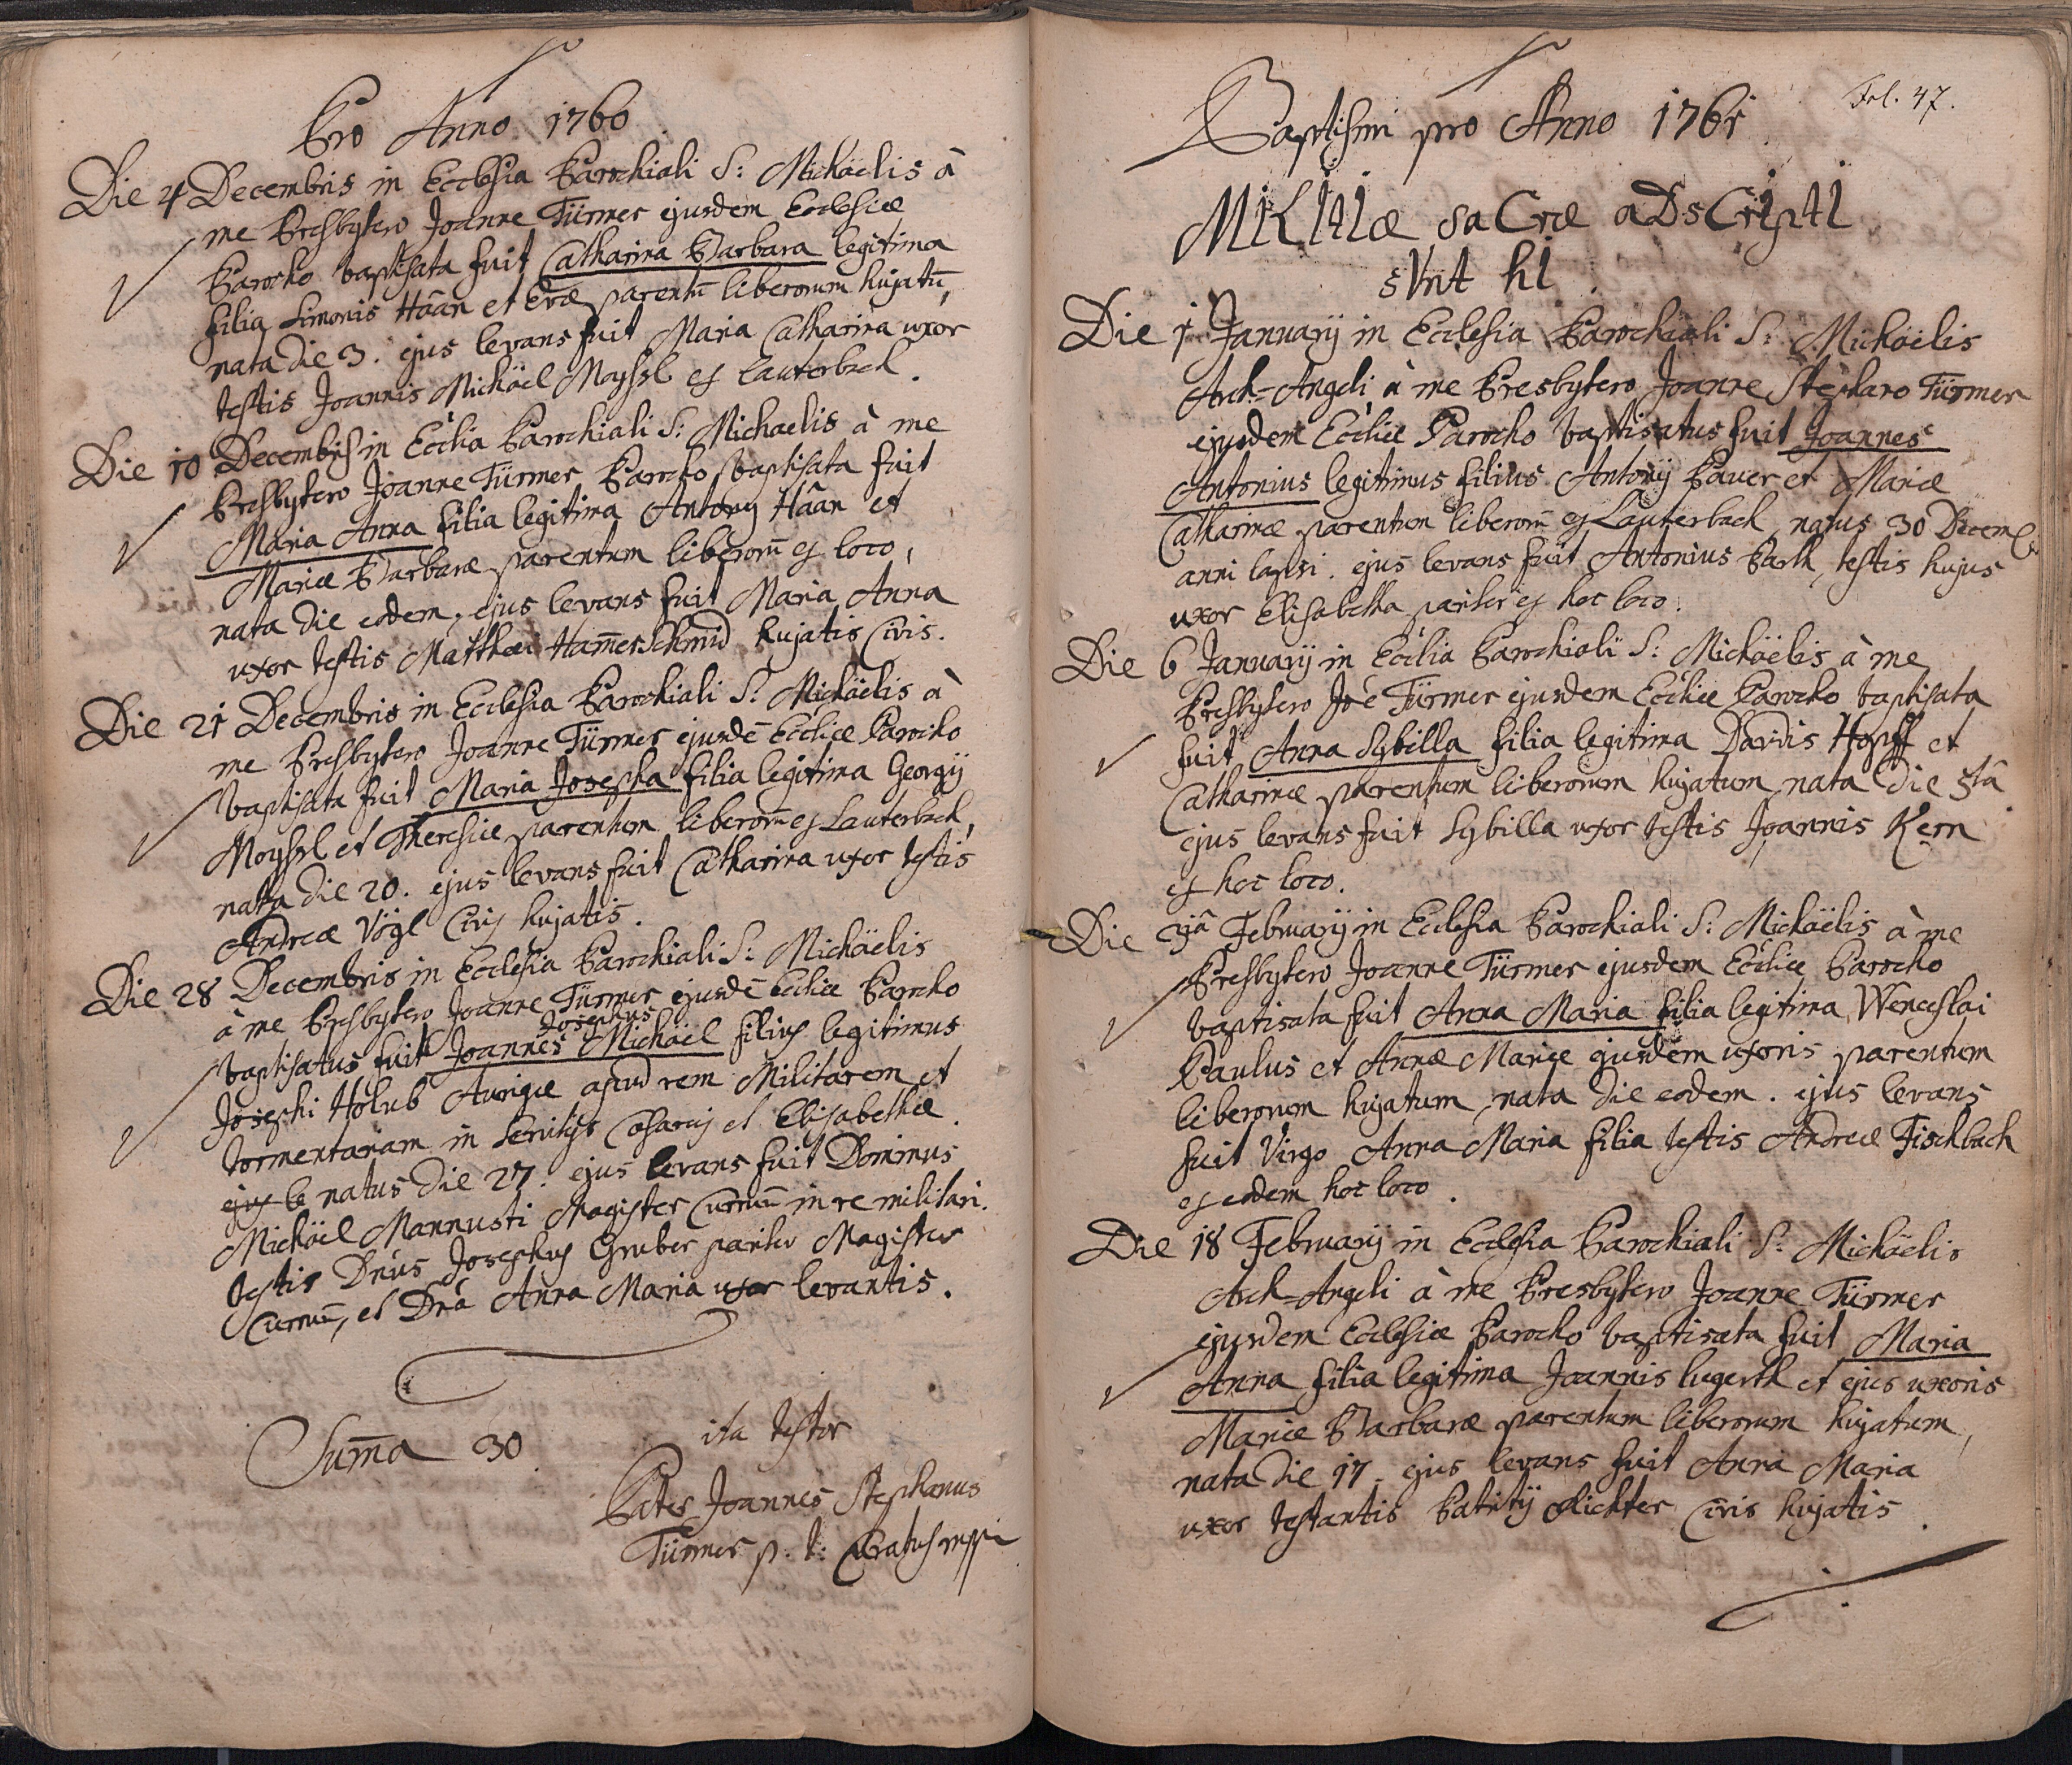 Pro Anno 1760
Die 4 Decembris in Ecclesia Parochiali S: Michäelis à
me Presbytero Joanne Türmer ejusdem Ecclesiæ
Parocho baptisata fuit Catharina Barbara legitima
filia Simonis Häan et Evæ parentū liberorum hujatū,
nata die 3. ejus levans fuit Maria Catharina uxor
testis Joannis Michäel Moyssl ex Lauterbach.
Die 10 Decembris in Ecclia Parochiali S: Michaelis à me
Presbytero Joanne Türmer Parocho baptisata fuit
Maria Anna filia legitima Antony Häan et
Mariæ Barbaræ parentum liberorū ex loco,
nata die eodem, ejus levans fuit Maria Anna
uxor testis Matthæi Ham̄erschmid hujatis Civis.
Die 21 Decembris in Ecclesia Parochiali S: Michäelis à
me Presbytero Joanne Türmer ejusdē Eccliæ Parocho
baptisata fuit Maria Josepha filia legitima Georgÿ
Moyssl et Theresiæ parentum liberorū ex Lauterbach,
nata die 20. ejus levans fuit Catharina uxor testis
Andreæ Vögl Civis hujatis.
Die 28 Decembris in Ecclesia Parochiali S: Michäelis
à me Presbytero Joanne Türmer ejusdē Eccliæ Parocho
Josephus
baptisatus fuit Joannes Michäel filius legitimus
Josephi Holub Aurigæ apud rem Militarem et
tormentariam in servitÿs Cæsareis et Elisabethæ
ejus le natus die 27. ejus levans fuit Dominus
Michäel Mannusti Magister Curruū in re militari.
testis Dn̄us Josephus Gruber pariter Magister
Curruū, et Dn̄a Anna Maria uxor levantis.
Sum̄a 30
ita testor
Pater Joannes Stephanus
Türmer p: t: Curatus mppia
Fol. 47.
Baptismi pro Anno 1761
MILItIæ saCræ aDsCrIptI
sVnt hI
Die 1 Januarÿ in Ecclesia Parochiali S: Michäelis
Arch=Angeli à me Presbytero Joanne Stephano Türmer
ejusdem Eccliæ Parocho baptisatus fuit Joannes
Antonius legitimus filius Antonÿ Pauer et Mariæ
Catharinæ parentum liberorū ex Lauterbach, natus 30 Decemb
anni lapsi. ejus levans fuit Antonius Parth, testis hujus
uxor Elisabetha pariter ex hoc loco.
Die 6 Januarÿ in Ecclia Parochiali S: Michäelis à me
Presbytero Joē Türmer ejusdem Eccliæ Parocho baptisata
fuit Anna Sybilla filia legitima Davidis Hopff et
Catharinæ parentum liberorum hujatum, nata die 5tâ
ejus levans fuit Sybilla uxor testis Joannis Kern
ex hoc loco.
Die 3ja Februarÿ in Ecclesia Parochiali S: Michäelis à me
Presbytero Joanne Türmer ejusdem Eccliæ Parocho
baptisata fuit Anna Maria filia legitima Wenceslai
Paulus et Annæ Mariæ ejusdem uxoris parentum
liberorum hujatum, nata die eodem. ejus levans
fuit Virgo Anna Maria filia testis Andreæ Fischbach
ex eodem hoc loco.
Die 18 Februarÿ in Ecclesia Parochiali S: Michäelis
Arch=Angeli à me Presbytero Joanne Türmer
ejusdem Ecclesiæ Parocho baptisata fuit Maria
Anna filia legitima Joannis Lugerth et ejus uxoris
Mariæ Barbaræ parentum liberorum hujatum,
nata die 17. ejus levans fuit Anna Maria
uxor testantis Patritÿ Richter Civis hujatis.